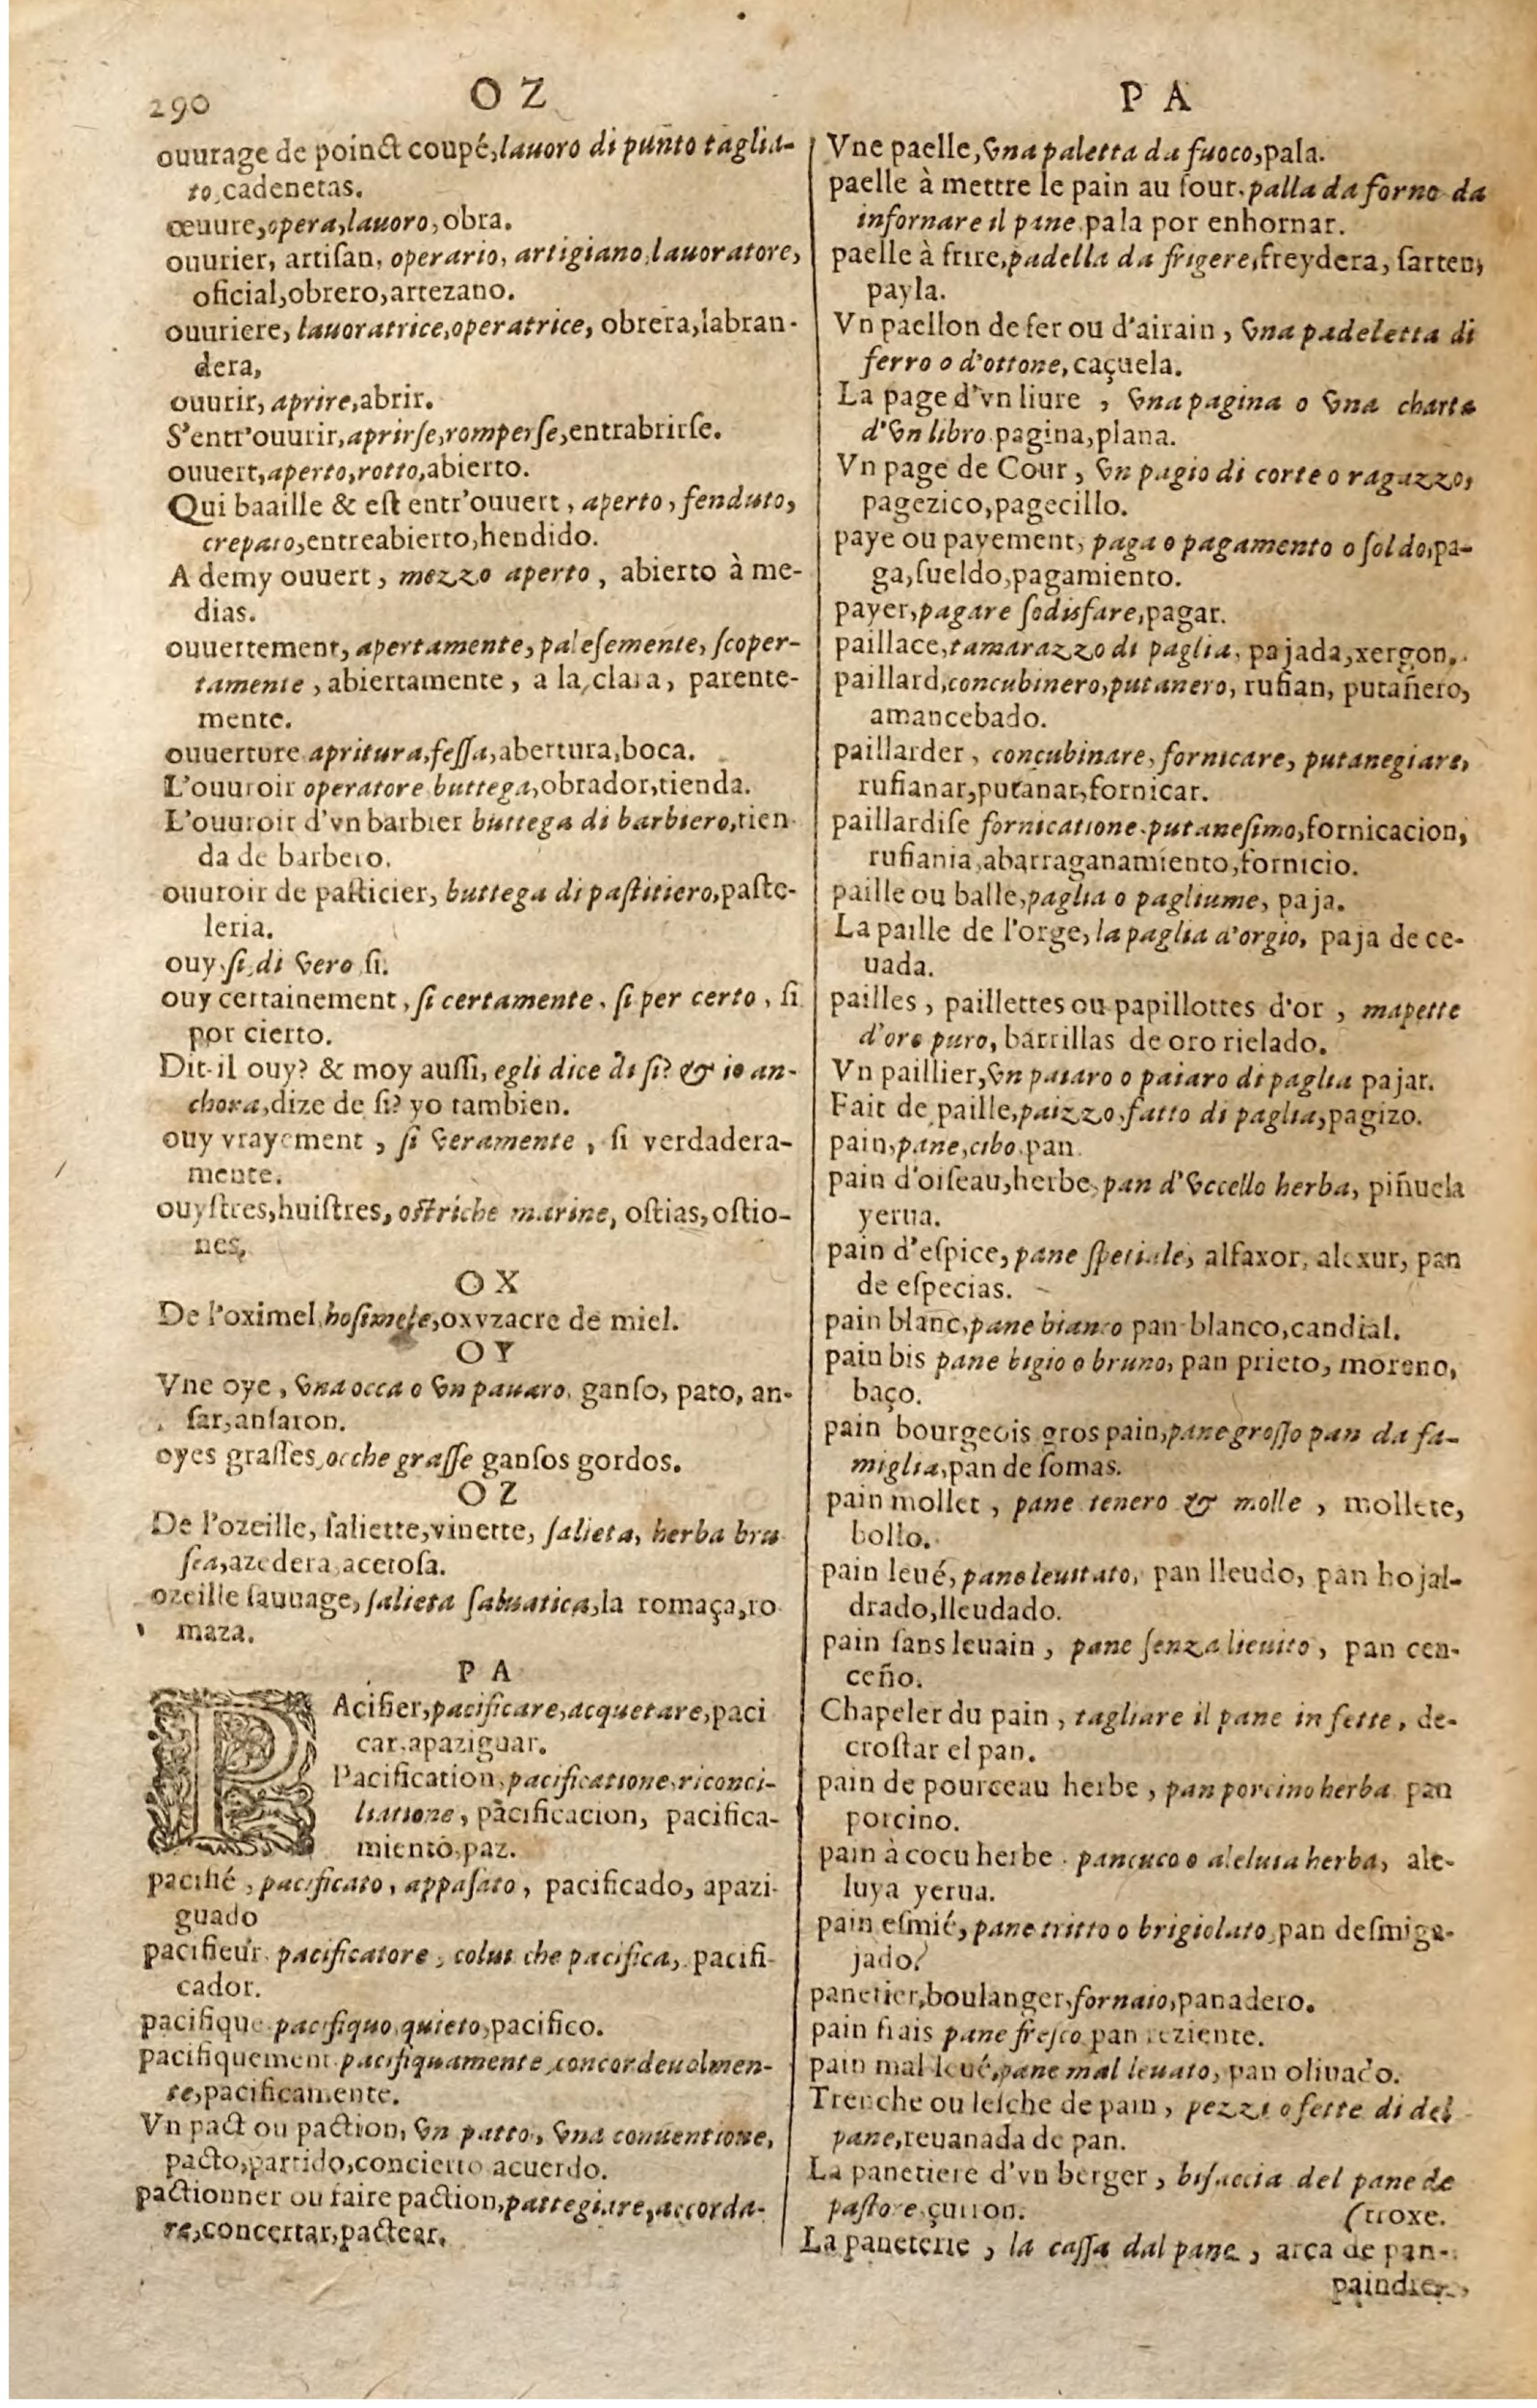 290
O Z
ouurage de poinct coupé, lauoro di punto taglia-
to, cadenetas.
œuure, opera, lauoro, obra.
ouurier, artiſan, operario, artigiano, lauoratore,
oficial, obrero, artezano.
ouuriere, lauoratrice, operatrice, obrera, labran-
dera,
ouurir, aprire, abrir.
S'entr'ouurir, aprirſe, romperſe, entrabrirſe.
ouuert, aperto, rotto, abierto.
Qui baaille & eſt entr'ouuert, aperto, fenduto,
crepato, entreabierto, hendido.
A demy ouuert, mezzo aperto, abierto à me-
dias.
ouuertement, apertamente, paleſemente, ſcoper-
tamente, abiertamente, a la clara, parente-
mente.
ouuerture apritura, feſſa, abertura, boca.
L'ouuroir operatore buttega, obrador, tienda.
L'ouuroir d'vn barbier buttega di barbiero, tien-
da de barbero.
ouuroir de paſticier, buttega di paſtitiero, paſte-
leria.
ouy, ſi, di vero, ſi.
ouy certainement, ſi certamente, ſi per certo, ſi
por cierto.
Dit-il ouy? & moy auſſi, egli dice di ſi? & io an-
chora, dize de ſi? yo tambien.
ouy vrayement, ſi veramente, ſi verdadera-
mente.
ouyſtres, huiſtres, oſtriche marine, oſtias, oſtio-
nes,
O X
De l'oximel, hoſimele, oxyzacre de miel.
O Y
Vne oye, vna occa o vn pauaro, ganſo, pato, an-
ſar, anſaron.
oyes graſſes, ocche graſſe ganſos gordos.
O Z
De l'ozeille, ſaliette, vinette, ſalieta, herba bru
ſca, azedera, acetoſa.
ozeille ſauuage, ſalieta ſaluatica, la romaça, ro
maza.
P A
PAcifier, pacificare, acquetare, paci
car, apaziguar.
Pacification, pacificatione, riconci-
liatione, pacificacion, pacifica-
miento, paz.
pacifié, pacificato, appaſato, pacificado, apazi-
guado
pacifieur, pacificatore, colui che pacifica, pacifi-
cador.
pacifique pacifiquo, quieto, pacifico.
pacifiquement pacifiquamente, concordeuolmen-
te, pacificamente.
Vn pact ou paction, vn patto, vna conuentione,
pacto, partido, concierto acuerdo.
pactionner ou faire paction, pattegiare, accorda-
re, concertar, pactear.
P A
Vne paelle, vna paletta da fuoco, pala.
paelle à mettre le pain au four, palla da forno da
infornare il pane, pala por enhornar.
paelle à frire, padella da frigere, freydera, ſarten,
payla.
Vn paellon de fer ou d'airain, vna padeletta di
ferro o d'ottone, caçuela.
La page d'vn liure, vna pagina o vna charta
d'vn libro, pagina, plana.
Vn page de Cour, vn pagio di corte o ragazzo,
pagezico, pagecillo.
paye ou payement, paga o pagamento o ſoldo, pa-
ga, ſueldo, pagamiento.
payer, pagare ſodisfare, pagar.
paillace, tamarazzo di paglia, pajada, xergon.
paillard, concubinero, putanero, rufian, putañero,
amancebado.
paillarder, concubinare, fornicare, putanegiare,
rufianar, putañar, fornicar.
paillardiſe fornicatione, putaneſimo, fornicacion,
rufiania, abarraganamiento, fornicio.
paille ou balle, paglia o pagliume, paja.
La paille de l'orge, la paglia d'orgio, paja de ce-
uada.
pailles, paillettes ou papillottes d'or, mapette
d'oro puro, barrillas de oro rielado.
Vn paillier, vn paiaro o paiaro di paglia pajar.
Fait de paille, paizzo, fatto di paglia, pagizo.
pain, pane, cibo, pan.
pain d'oiſeau, herbe, pan d'vccello herba, piñuela
yerua.
pain d'eſpice, pane ſpetiale, alfaxor, alexur, pan
de eſpecias.
pain blanc, pane bianco pan blanco, candial.
pain bis pane bigio o bruno, pan prieto, moreno,
baço.
pain bourgeois gros pain, pane groſſo pan da fa-
miglia, pan de ſomas.
pain mollet, pane tenero & molle, mollete,
bollo.
pain leué, pane leuitato, pan lleudo, pan hojal-
drado, lleudado.
pain ſans leuain, pane ſenza lieuito, pan cen-
ceño.
Chapeler du pain, tagliare il pane in fette, de-
croſtar el pan.
pain de pourceau herbe, pan porcino herba pan
porcino.
pain à cocu herbe, pancuco o aleluia herba, ale-
luya yerua.
pain eſmié, pane tritto o brigiolato, pan deſmiga-
jado.
panetier, boulanger, fornaio, panadero.
pain frais pane freſco pan reziente.
pain mal leué, pane mal leuato, pan oliuado.
Trenche ou leſche de pain, pezzi o fette di del
pane, reuanada de pan.
La panetiere d'vn berger, biſaccia del pane de
paſtore, çurron.
(troxe.
La paneterie, la caſſa dal pane, arca de pan-
paindier,